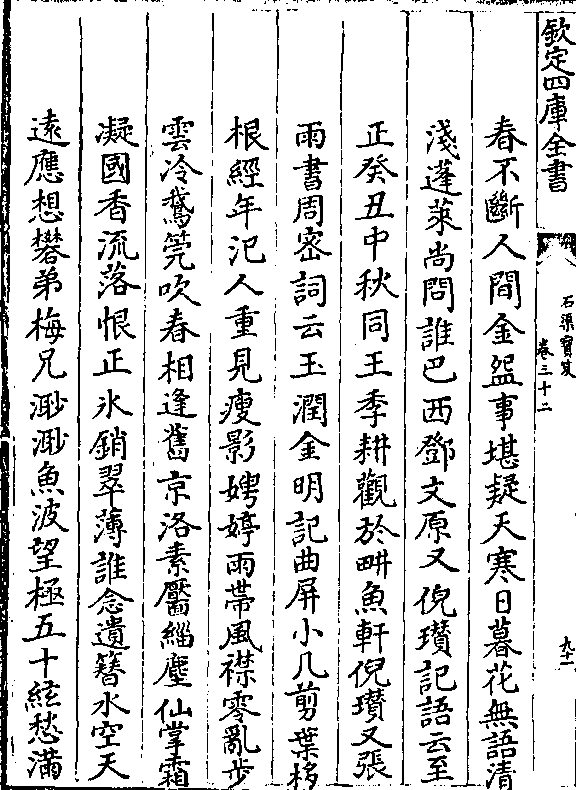 欽定四庫全書
石渠寳笈
卷三十二
九十一
春不斷人間金盌事堪疑天寒日暮花無語清
淺蓬萊尚問誰巴西鄧文原又倪瓚記語云至
正癸丑中秋同王季耕觀於畊魚軒倪瓚又張
雨書周宻詞云玉潤金明記曲屏小几剪葉移
根經年汜人重見瘦影娉婷雨帶風襟零亂步
雲冷鵞筦吹春相逢舊京洛素靨緇塵仙掌霜
凝國香流落恨正氷銷翠薄誰念遺簪水空天
逺應想礬弟梅兄渺渺魚波望極五十絃愁滿